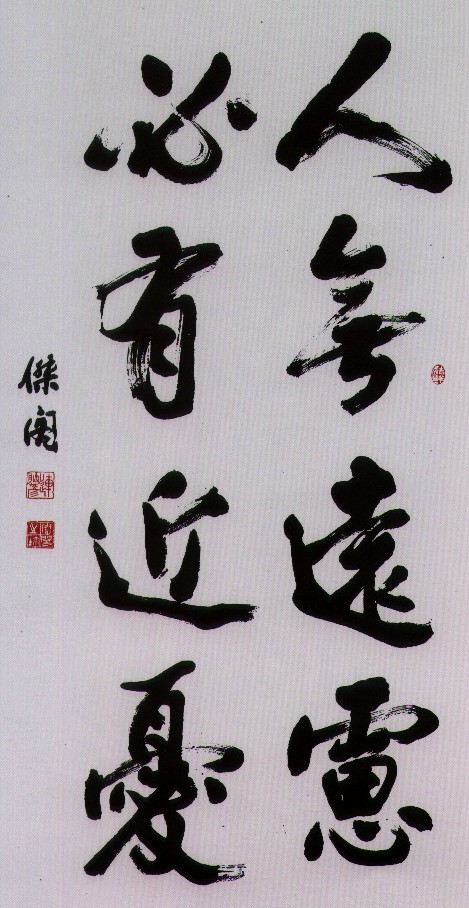 人無遠慮
必有近憂
傑閣